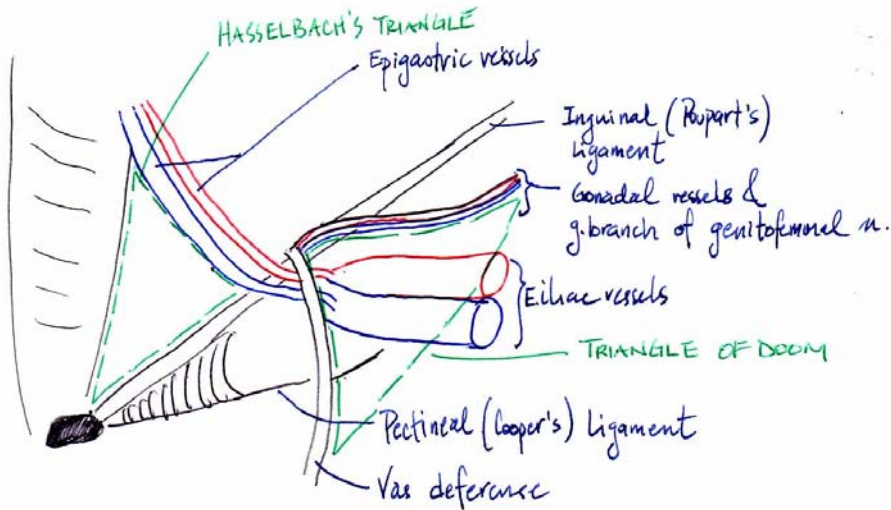 HASSELBACH'S TRIANGLE
Epigastric vessels
Inguinal (Poupart's)
Ligament
Gonadal vessels &
g.branch of genitofemoral n.
E.iliac vessels
TRIANGLE OF DOOM
Pectineal (Cooper's) Ligament
Vas deferense